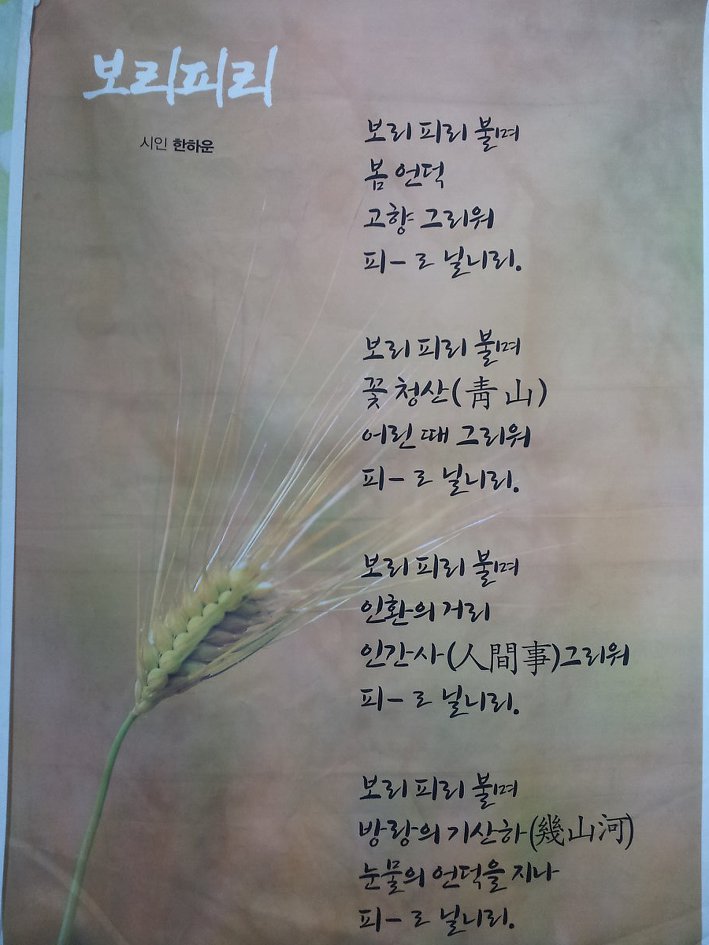 보리피리
시인 한하운
보리 피리 불며
봄 언덕
고향 그리워
피— ㄹ 닐니리.
보리 피리 불며
꽃 청산(靑山)
어린 때 그리워
피— ㄹ 닐니리.
보리 피리 불며
인환의 거리
인간사(人間事)그리워
피— ㄹ 닐니리.
보리 피리 불며
방랑의 기산하(幾山河)
눈물의 언덕을 지나
피— ㄹ 닐니리.